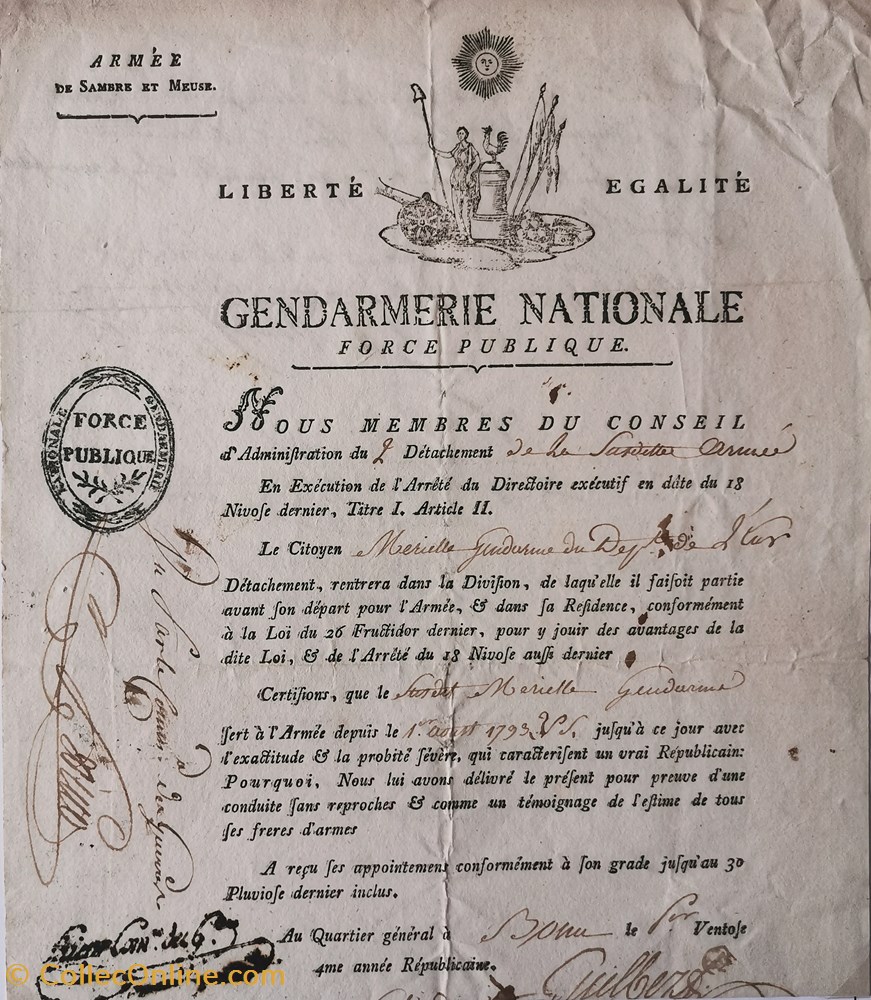 ARMÉE
DE SAMBRE ET MEUSE.
LIBERTÉ EGALITÉ
GENDARMERIE NATIONALE
FORCE PUBLIQUE.
GENDARMERIE NATIONALE
FORCE
PUBLIQUE
NOUS MEMBRES DU CONSEIL
d'Adminiſtration du 2 Détachement de la Susditte Armée
En Exécution de l'Arrêté du Directoire exécutif en dâte du 18
Nivoſe dernier, Titre I. Article II.
Le Citoyen Merielle Gendarme du Dept. de
Détachement, rentrera dans la Diviſion, de laqu'elle il faiſoit partie
avant ſon départ pour l'Armée, & dans ſa Reſidence, conformément
à la Loi du 26 Fructidor dernier, pour y jouir des avantages de la
dite Loi, & de l'Arrêté du 18 Nivoſe auſſi dernier
Certifions, que le Susdit Merielle Gendarme
ſert à l'Armée depuis le 1er aoust 1793 V.S. juſqu'à ce jour avec
l'exactitude & la probité ſévère, qui caracteriſent un vrai Républicain:
Pourquoi, Nous lui avons délivré le préſent pour preuve d'une
conduite ſans reproches & comme un témoignage de l'eſtime de tous
ſes freres d'armes
A reçu ſes appointemens conformément à ſon grade juſqu'au 30
Pluvioſe dernier inclus.
Au Quartier général à Bonn le 1er Ventoſe
4me année Républicaine.
Vu Par le Comre. des Guerres
© CollecOnline.com